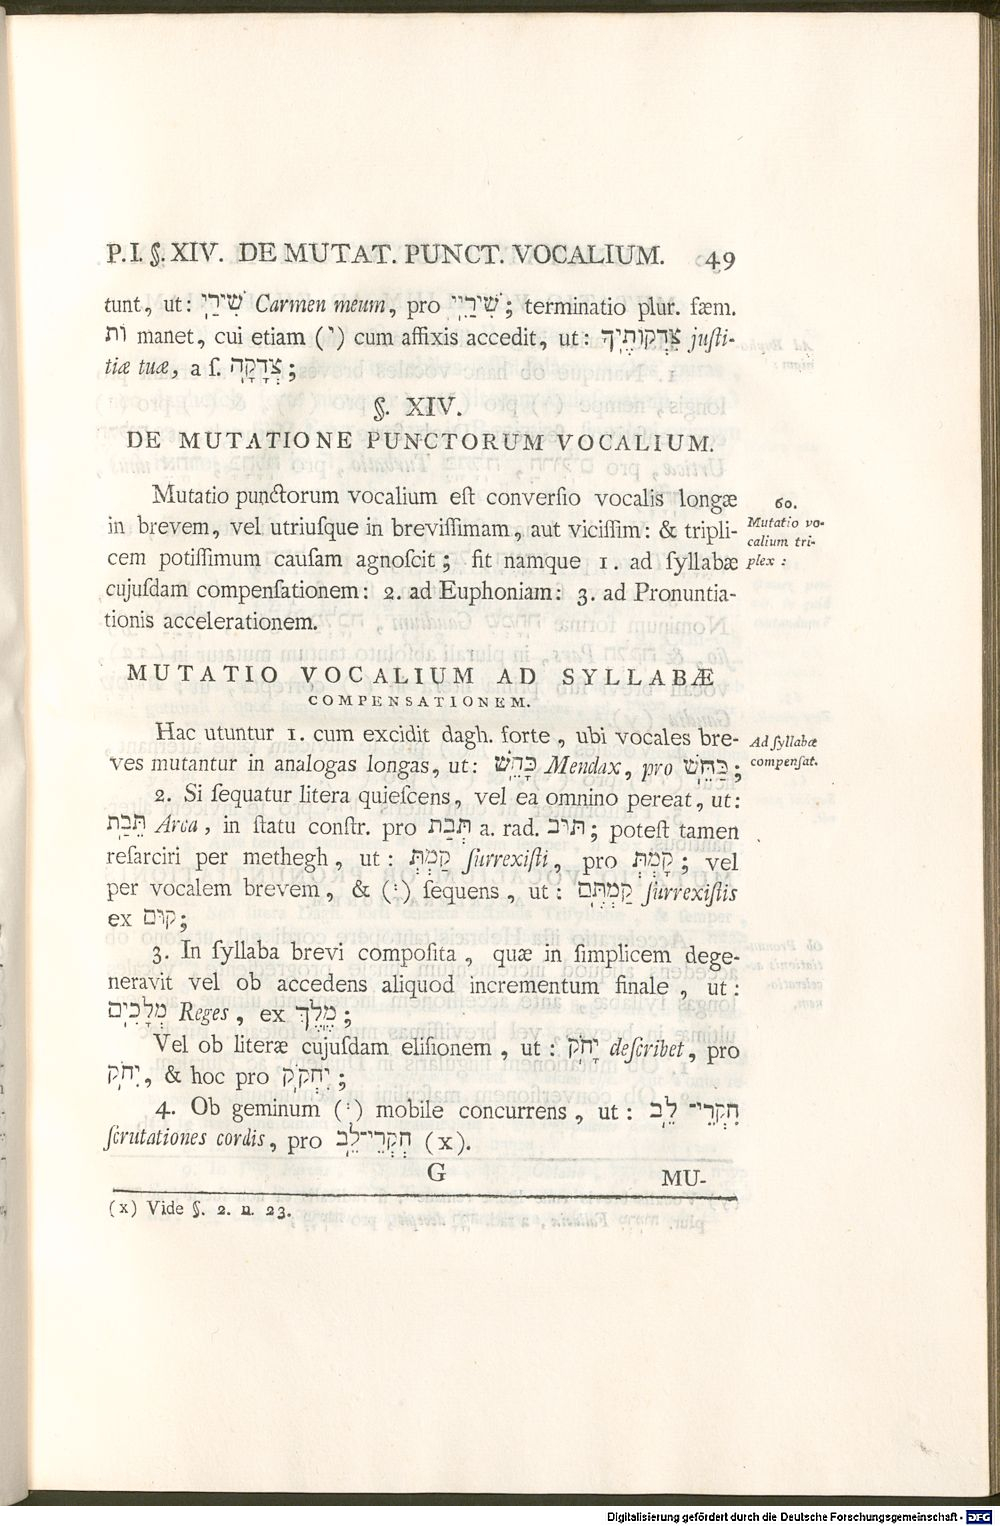 P. I. §. XIV. DE MUTAT. PUNCT. VOCALIUM. 49
tunt, ut: שִׁירַי Carmen meum, pro שִׁירַיִי; terminatio plur. fæm.
וֹת manet, cui etiam (י) cum affixis accedit, ut: צִדְקוֹתֶיךָ juſti-
tiæ tuæ, a ſ. צְדָקָה;
§. XIV.
DE MUTATIONE PUNCTORUM VOCALIUM.
Mutatio punctorum vocalium eſt converſio vocalis longæ
in brevem, vel utriuſque in breviſſimam, aut viciſſim: & tripli-
cem potiſſimum cauſam agnoſcit; fit namque 1. ad ſyllabæ
cujuſdam compenſationem: 2. ad Euphoniam: 3. ad Pronuntia-
tionis accelerationem.
60.
Mutatio vo-
calium tri-
plex:
MUTATIO VOCALIUM AD SYLLABÆ
COMPENSATIONEM.
Hac utuntur 1. cum excidit dagh. forte, ubi vocales bre-
ves mutantur in analogas longas, ut: כָּחֵשׁ Mendax, pro כַּחֵּשׁ;
Ad ſyllabæ
compenſat.
2. Si ſequatur litera quieſcens, vel ea omnino pereat, ut:
תֵּבַת Arca, in ſtatu conſtr. pro תְּבַת a. rad. תוּב; poteſt tamen
reſarciri per methegh, ut: קַמְתְּ ſurrexiſti, pro קָמְתְּ; vel
per vocalem brevem, & (ְ) ſequens, ut: קַמְתֶּם ſurrexiſtis
ex קוּם;
3. In ſyllaba brevi compoſita, quæ in ſimplicem dege-
neravit vel ob accedens aliquod incrementum finale, ut:
מְלָכִים Reges, ex מֶלֶךְ;
Vel ob literæ cujuſdam eliſionem, ut: יָחֹק deſcribet, pro
יִחֹק, & hoc pro יִחְקֹק;
4. Ob geminum (ְ) mobile concurrens, ut: חִקְרֵי־ לֵב
ſcrutationes cordis, pro חְקְרֵי־לֵב (x).
G MU-
(x) Vide §. 2. n. 23.
Digitalisierung gefördert durch die Deutsche Forschungsgemeinschaft - DFG